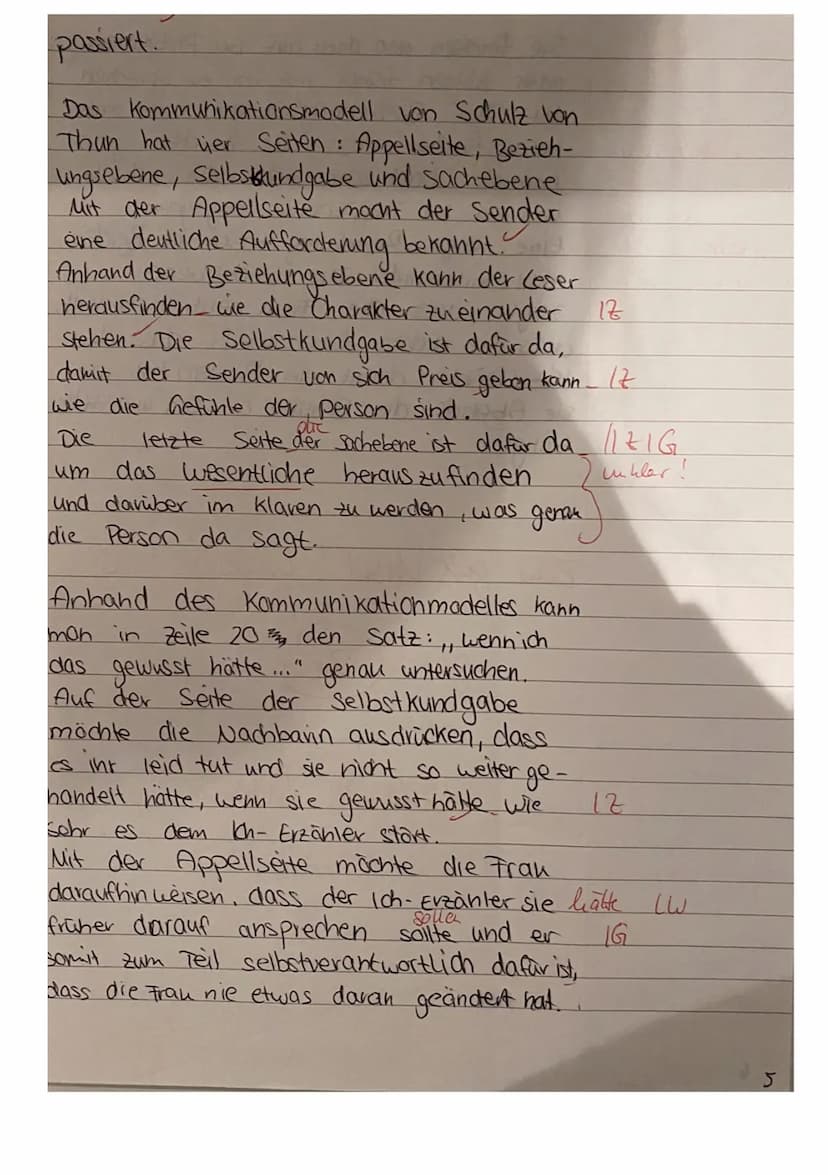 passiert.
Das Kommunikationsmodell von Schulz von
Thun hat vier Seiten : Appellseite, Bezieh-
ungsebene, Selbstkundgabe und Sachebene
Mit der Appellseite macht der Sender
eine deutliche Aufforderung bekannt.
Anhand der Beziehungsebene kann der Leser
herausfinden wie die Charakter zueinander IZ
stehen. Die Selbstkundgabe ist dafür da,
damit der Sender von sich Preis geben kann IZ
wie die Gefühle der Person sind.
die
Die letzte Seite der Sachebene ist dafür da IIZ IG
um das wesentliche herauszufinden unklar!
und darüber im Klaren zu werden, was genau
die Person da sagt.
Anhand des Kommunikationmodelles kann
man in Zeile 20 den Satz: „wenn ich
das gewusst hätte..." genau untersuchen.
Auf der Seite der Selbstkundgabe
möchte die Nachbarin ausdrücken, dass
es ihr leid tut und sie nicht so weiter ge-
handelt hätte, wenn sie gewusst hätte wie IZ
sehr es dem Ich-Erzähler stört.
Mit der Appellseite möchte die Frau
daraufhinweisen, dass der Ich-Erzähler sie hätte IW
sollen
früher darauf ansprechen sollte und er IG
somit zum Teil selbstverantwortlich dafür ist,
dass die Frau nie etwas daran geändert hat.
5